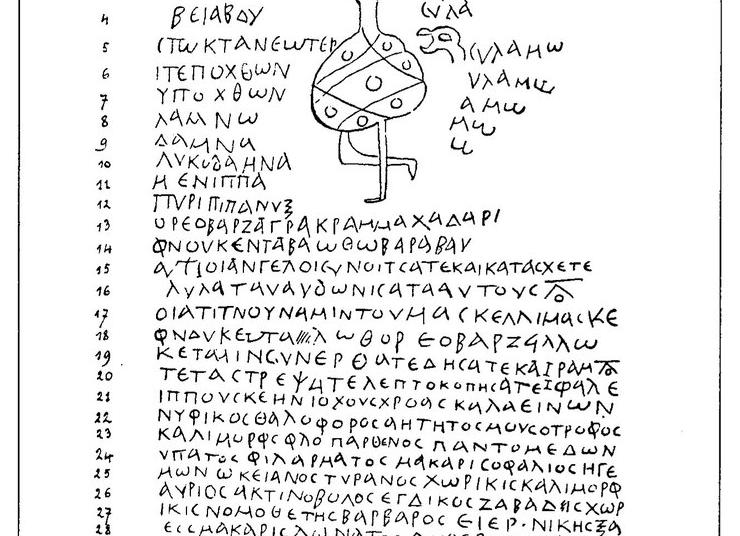 4 ΒΕΙΑΒΔΥ
ϹΥΛΑ
5 ϹΤѠΚΤΑΝΕѠΤΕΡ
ϹΥΛΑΜѠ
6 ΙΤΕΠΟΧΘѠΝ
ΥΛΑΜѠ
7 ΥΠΟΧΘѠΝ
ΑΜѠ
8 ΛΑΜΝѠ
ΜѠ
9 ΔΑΜΝΑ
Ѡ
10 ΛΥΚΟΔΑΜΝΑ
11 ΜΕΝΙΠΠΑ
12 ΠΥΡΙΠΙΠΑΝΥΞ
13 ΟΡΕΟΒΑΡΖΑΓΡΑΚΡΑΜΜΑΧΑΔΑΡΙ
14 ΦΝΟΥΚΕΝΤΑΒΑѠΘѠΒΑΡΑΒΑΥ
15 ΟΙΑΝΓΕΛΟΙϹΥΝΟΙΤϹΑΤΕΚΑΙΚΑΤΑϹΧΕΤΕ
16 ΛΥΛΑΤΑΝΑΥΔѠΝΙϹΑΤΑΑΥΤΟΥϹ
17 ΟΙΑΤΙΤΝΟΥΝΑΜΙΝΤΟΥΜΑϹΚΕΛΛΙΜΑϹΚΕ
18 ΦΝΔΥΚΕΝΤΑ ѠΘΟΡΕΟΒΑΡΖΑΛΛѠ
19 ΚΕΤΑΜΙΝϹΥΝΕΡΘΑΤΕΔΗϹΑΤΕΚΑΙ
20 ΤΕΤΑϹΤΡΕΨΑΤΕΛΕΠΤΟΚΟΠΗϹΑΤΕΙΦΑΛΕ
21 ΙΠΠΟΥϹΚΕΗΝΙΟΧΟΥϹΧΡΟΑϹΚΑΛΑΕΙΝѠΝ
22 ΝΥΦΙΚΟϹΘΑΛΟΦΟΡΟϹΑΗΤΗΤΟϹΜΟΥϹΟΤΡΟΦΟϹ
23 ΚΑΛΙΜΟΡΦϹΦΛΟΠΑΡΘΕΝΟϹΠΑΝΤΟΜΕΔѠΝ
24 ΥΠΑΤΟϹΦΙΛΑΡΜΑΤΟϹΜΑΚΑΡΙϹΟΦΑΛΙΟϹΗΓΕ
25 ΜѠΝѠΚΕΙΑΝΟϹΤΥΡΑΝΟϹΧѠΡΙΚΙϹΚΑΛΙΜΟΡΦ
26 ΑΥΡΙΟϹΑΚΤΙΝΟΒΟΛΟϹΕΓΔΙΚΟϹΖΑΒΑΔΗϹΧѠΡ
27 ΙΚΙϹΝΟΜΟΘΕΤΗϹΒΑΡΒΑΡΟϹΕΙΕΡ·ΝΙΚΗϹΞΑ
28